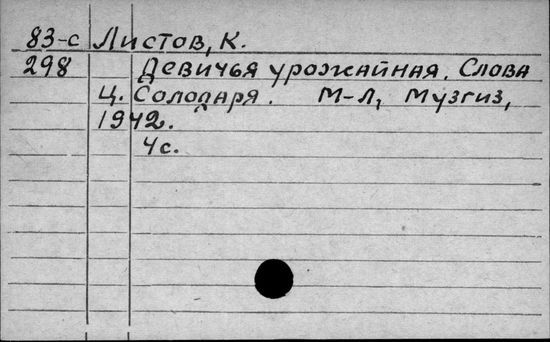 83-с Листов, К.
298 Девичья урожайная. Слова
Ц. Солодаря. М-Л, Музгиз,
1942.
4с.